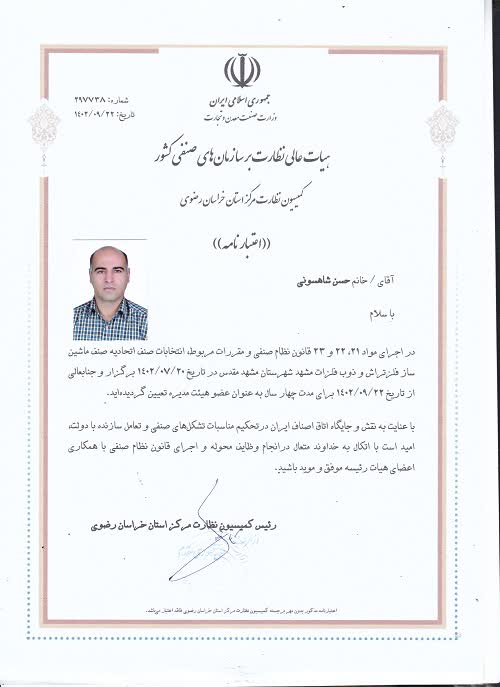 جمهوری اسلامی ایران
وزارت صنعت معدن و تجارت
شماره: ۲۹۷۷۳۸
تاریخ: ۱۴۰۲/۰۹/۲۲
هیات عالی نظارت بر سازمان های صنفی کشور
کمیسیون نظارت مرکز استان خراسان رضوی
((اعتبار نامه))
آقای / خانم حسن شاهسونی
با سلام
در اجرای مواد ۲۱، ۲۲ و ۲۳ قانون نظام صنفی و مقررات مربوط، انتخابات صنف اتحادیه صنف ماشین
ساز فلزتراش و ذوب فلزات مشهد شهرستان مشهد مقدس در تاریخ ۱۴۰۲/۰۷/۲۰ برگزار و جنابعالی
از تاریخ ۱۴۰۲/۰۹/۲۲ برای مدت چهار سال به عنوان عضو هیئت مدیره تعیین گردیده‌اید.
با عنایت به نقش و جایگاه اتاق اصناف ایران در تحکیم مناسبات تشکل‌های صنفی و تعامل سازنده با دولت،
امید است با اتکال به خداوند متعال در انجام وظایف محوله و اجرای قانون نظام صنفی با همکاری
اعضای هیات رئیسه موفق و موید باشید.
رئیس کمیسیون نظارت مرکز استان خراسان رضوی
اعتبارنامه مذکور بدون مهر برجسته کمیسیون نظارت مرکز استان خراسان رضوی فاقد اعتبار می‌باشد.